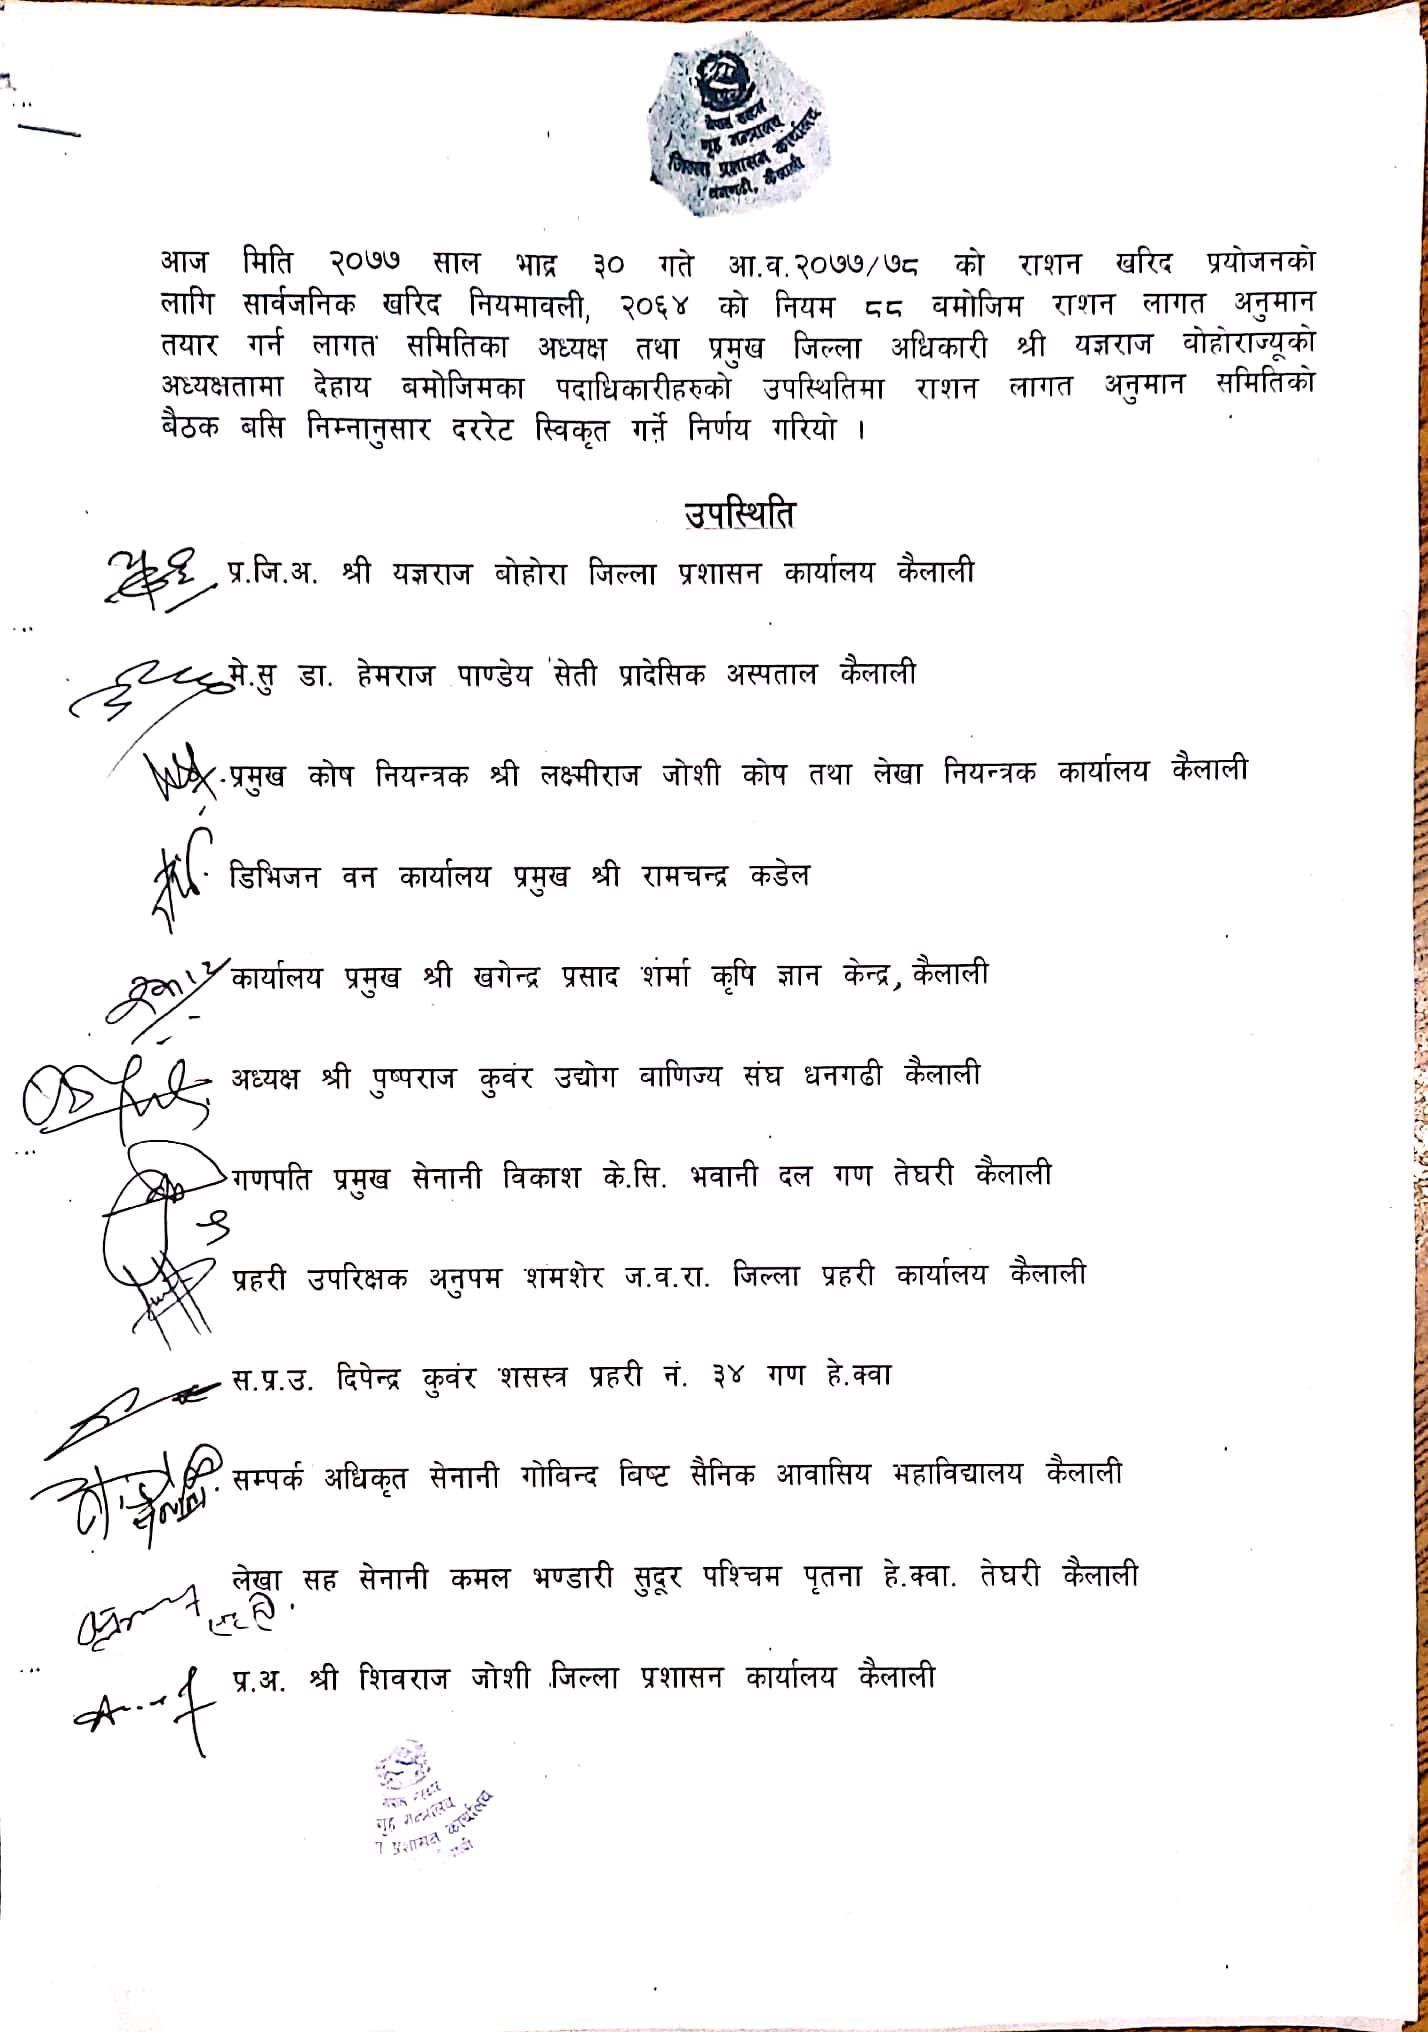 नेपाल सरकार
गृह मन्त्रालय
जिल्ला प्रशासन कार्यालय
धनगढी, कैलाली
आज मिति २०७७ साल भाद्र ३० गते आ.व.२०७७/७८ को राशन खरिद प्रयोजनको
लागि सार्वजनिक खरिद नियमावली, २०६४ को नियम ८८ वमोजिम राशन लागत अनुमान
तयार गर्न लागत समितिका अध्यक्ष तथा प्रमुख जिल्ला अधिकारी श्री यज्ञराज वोहोराज्यूको
अध्यक्षतामा देहाय बमोजिमका पदाधिकारीहरुको उपस्थितिमा राशन लागत अनुमान समितिको
बैठक बसि निम्नानुसार दररेट स्विकृत गर्ने निर्णय गरियो ।
उपस्थिति
प्र.जि.अ. श्री यज्ञराज बोहोरा जिल्ला प्रशासन कार्यालय कैलाली
मे.सु डा. हेमराज पाण्डेय सेती प्रादेसिक अस्पताल कैलाली
प्रमुख कोष नियन्त्रक श्री लक्ष्मीराज जोशी कोष तथा लेखा नियन्त्रक कार्यालय कैलाली
डिभिजन वन कार्यालय प्रमुख श्री रामचन्द्र कडेल
कार्यालय प्रमुख श्री खगेन्द्र प्रसाद शर्मा कृषि ज्ञान केन्द्र, कैलाली
अध्यक्ष श्री पुष्पराज कुवंर उद्योग वाणिज्य संघ धनगढी कैलाली
गणपति प्रमुख सेनानी विकाश के.सि. भवानी दल गण तेघरी कैलाली
प्रहरी उपरिक्षक अनुपम शमशेर ज.व.रा. जिल्ला प्रहरी कार्यालय कैलाली
स.प्र.उ. दिपेन्द्र कुवंर शसस्त्र प्रहरी नं. ३४ गण हे.क्वा
सम्पर्क अधिकृत सेनानी गोविन्द विष्ट सैनिक आवासिय महाविद्यालय कैलाली
लेखा सह सेनानी कमल भण्डारी सुदूर पश्चिम पृतना हे.क्वा. तेघरी कैलाली
प्र.अ. श्री शिवराज जोशी जिल्ला प्रशासन कार्यालय कैलाली
गृह मन्त्रालय
प्रशासन कार्यालय